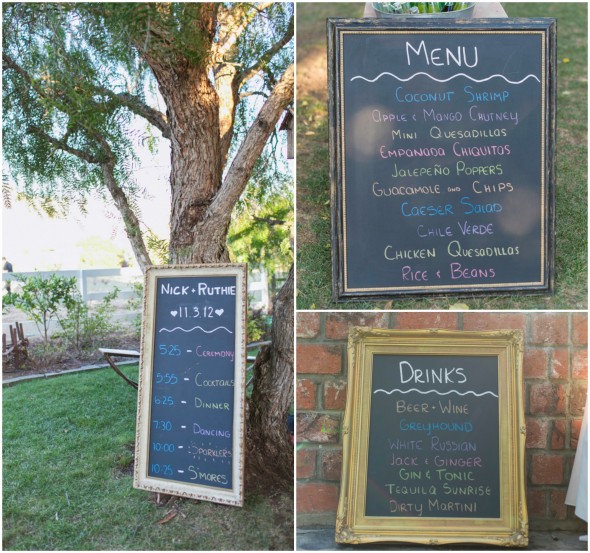 NICK + RUTHIE
♥ 11.3.12 ♥
5:25 - CEREMONY
5:55 - COCKTAILS
6:25 - DINNER
7:30 - DANCING
10:00 - SPARKLERS
10:25 - S'MORES
MENU
COCONUT SHRIMP
APPLE & MANGO CHUTNEY
MINI QUESADILLAS
EMPANADA CHIQUITAS
JALEPEÑO POPPERS
GUACAMOLE AND CHIPS
CAESER SALAD
CHILE VERDE
CHICKEN QUESADILLAS
RICE & BEANS
DRINKS
BEER + WINE
GREYHOUND
WHITE RUSSIAN
JACK & GINGER
GIN & TONIC
TEQUILA SUNRISE
DIRTY MARTINI